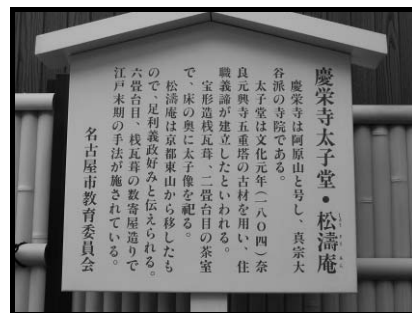 慶栄寺太子堂・松濤庵
慶栄寺は阿原山と号し、真宗大
谷派の寺院である。
太子堂は文化元年(一八〇四)奈
良元興寺五重塔の古材を用い、住
職義諦が建立したといわれる。
宝形造桟瓦葺、二畳台目の茶室
で、床の奥に太子像を祀る。
松濤庵は京都東山から移したも
ので、足利義政好みと伝えられる。
六畳台目、桟瓦葺の数寄屋造りで
江戸末期の手法が施されている。
名古屋市教育委員会